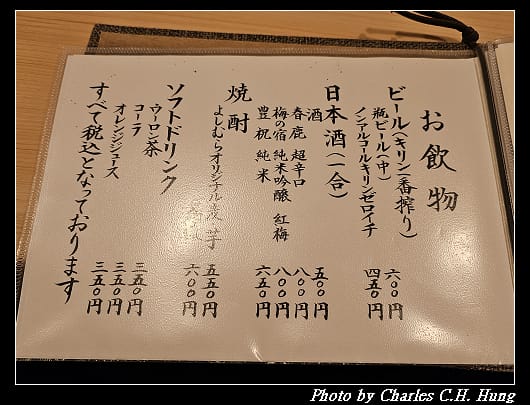 お飲物
ビール(キリン一番搾り)
瓶ビール(中) 六〇〇円
ノンアルコールキリンゼロイチ 四五〇円
日本酒(一合)
酒 五〇〇円
春鹿 超辛口 八〇〇円
梅の宿 純米吟醸 紅梅 八〇〇円
豊祝 純米 六五〇円
焼酎
よしむらオリジナル 芋 五五〇円
六〇〇円
ソフトドリンク
ウーロン茶 三五〇円
コーラ 三五〇円
オレンジジュース 三五〇円
すべて税込となっております
Photo by Charles C.H. Hung